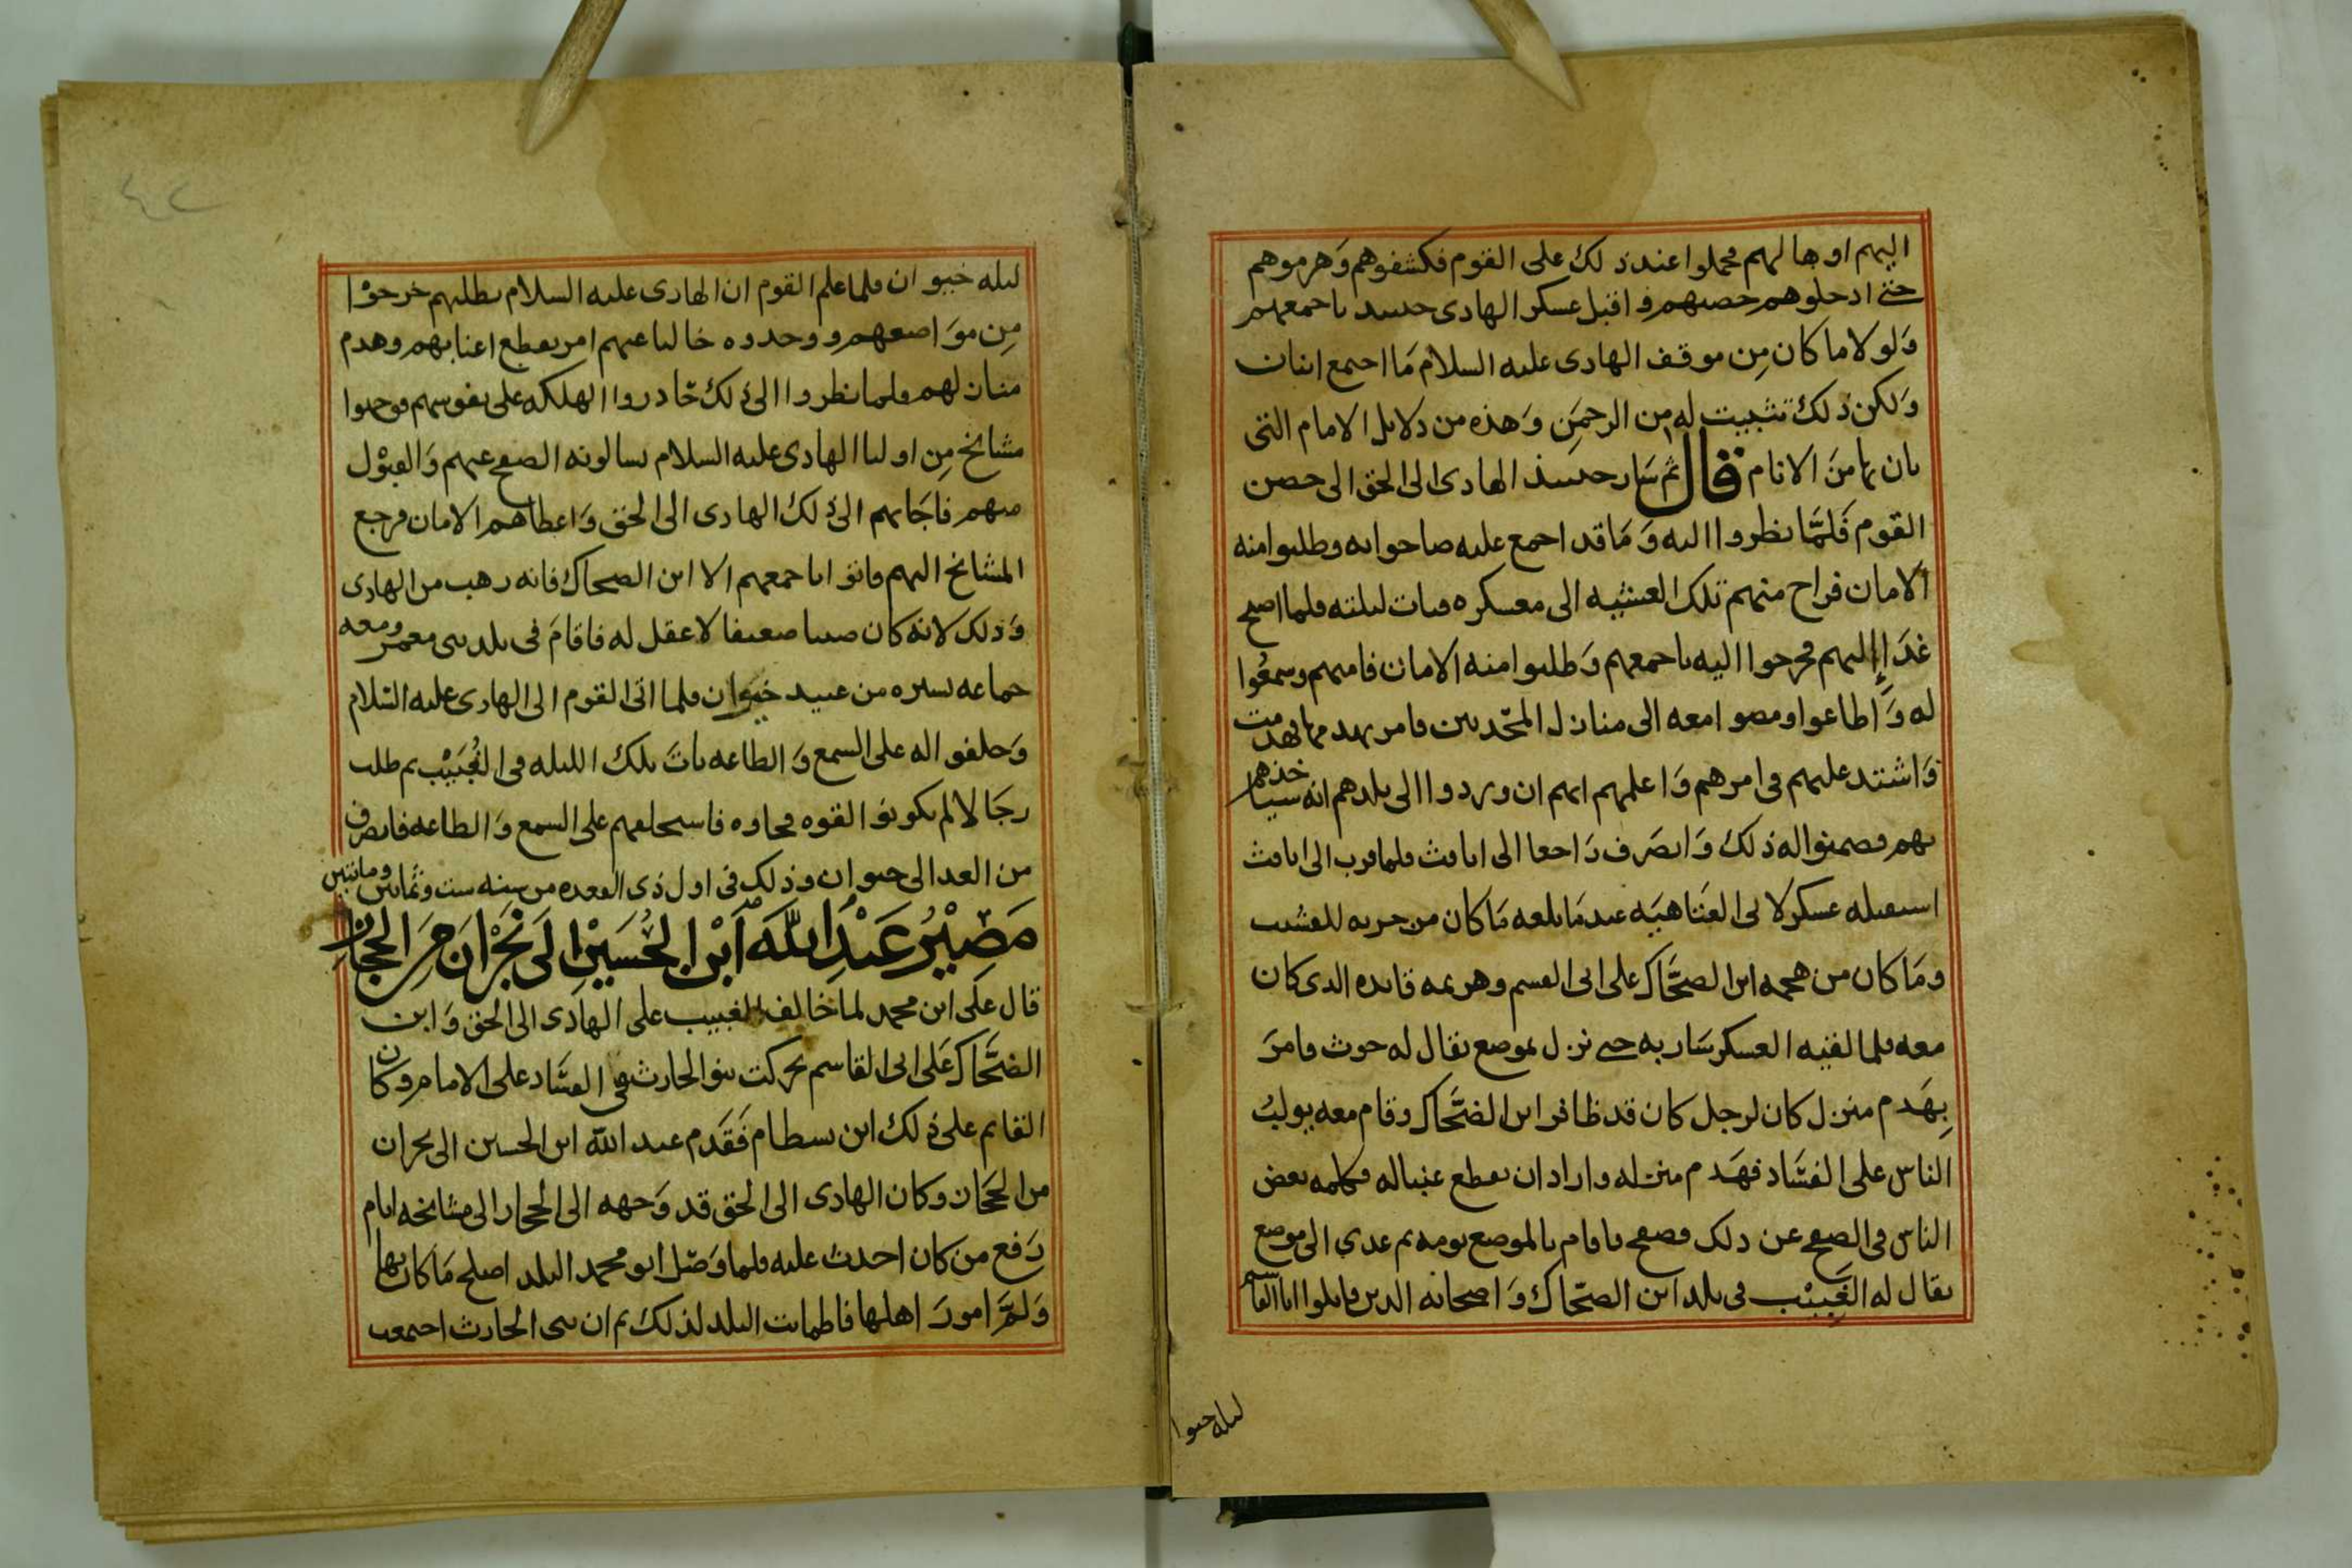 اليهم اوهالهم فحملوا عند ذلك على القوم فكشفوهم وَهزموهم
حتى ادخلوهم حصنهم و اقبل عسكر الهادى حينيذ باجمعهم
وَلولا ما كان مِن موقف الهادى عليه السلام مَا اجتمع اثنان
وَلكن ذلك تثبيت له من الرحمَنِ وَهذه من دلايل الامام التى
بان بها منَ الانام قال ثم سَار حينيذ الهادى الى الحق الى حصن
القوم فَلمَّا نظروا اليه وَمَا قد اجمع عليه صاحوا به وطلبوا منه
الامان فراح منهم تلك العشيه الى معسكره فبات ليلته فلما اصبح
غدَا إليهم فخرجوا اليه باجمعهم وَطلبوا منه الامان فامنهم وسمعُوا
له وَاطاعوا ومضوا معه الى منازل المحّدثين فامر بهدمها فهدمت
وَاشتد عليهم فى امرهم وَاعلمهم انهم ان وردوا الى بلدهم انه سياخذهم
بهم فضمنوا له ذلك وَانصَرف رَاجعا الى اثافث فلما قرب الى اثافث
استقبله عسكر لابى العَتاهيَه عند مَا بلغه مَا كان من حربه للعشب
ومَا كان من هجمه ابن الضحَّاك على ابى القسم وهزيمه قايده الذى كان
معه فلما لقيه العسكر سَار به حتى نزل بموضع يقال له حوث فامرَ
بِهَدم منزل كان لرجل كان قد ظافر ابن الضحَّاك وقام معه يولبُ
الناس على الفسَاد فهَدم منزله واراد ان يقطع عنباله فكلمه بعض
الناس فى الصفح عن ذلك فصفح فاقام بالموضع يومه ثم غدى الى موضع
يقال له الغَبِيْب فى بلد ابن الضحّاك وَاصحابه الذين قاتلوا ابا القاسم
ليله خيوا
ليله خيوان فلما علم القوم ان الهادى عليه السلام يطلبهم خرجوْا
مِن موَاضعهم ووجدوه خاليا عنهم امر بقطع اعنابهم وهدم
منازلهم فلما نظروا الى ذلك حَاذروا الهلكه على نفوسهم فوجهوا
مشايخ مِن اوليا الهادى عليه السلام يسالونه الصفح عنهم وَالقبْول
منهم فاجَابهم الى ذلك الهادى الى الحق وَاعطاهم الامان فرجع
المشايخ اليهم فاتوا باجمعهم الا ابن الضحاك فانه رهب من الهادى
وَذلك لانه كان صبيا ضعيفا لا عقل له فاقامَ فى بلد بنى معمر ومعه
جماعه يسيره من عبيد خيوان فلما اتى القوم الى الهادى عليه السَلام
وَحلفوا له على السمع وَالطاعه باتَ تلك الليله فى الغُبَيْب ثم طلب
رجَالا لم يكونوا لقوه فجاوه فاستحلفهم على السمع وَالطاعه فانصرف
من الغد الى خيوان وذلك فى اول ذى القعده من سنه ست وثمانين ومائتين
مَصِيْرُ عَبْدِ اللَّهِ ابْنِ الحُسَيْنِ الَى نَجْرَانَ مِنَ الحجَازِ
قال علَى ابن محمد لما خالف الغبيب على الهادَى الى الحق وَابن
الضحَّاك عَلى ابى القاسم تحركت بنو الحارث فى الفسَاد على الامام وكان
القايم على ذلك ابن بسطام فَقَدم عبد الله ابن الحسين الى نجران
من الحجَاز وكان الهادى الى الحق قد وَجهه الى الحجاز الى مشايخه ايام
رَفع من كان احدث عليه فلما وَصَل ابو محمد البلد اصلح مَا كان بها
وَلمَّ امورَ اهلها فاطمانت البلد لذلك ثم ان بنى الحارث اجتمعت